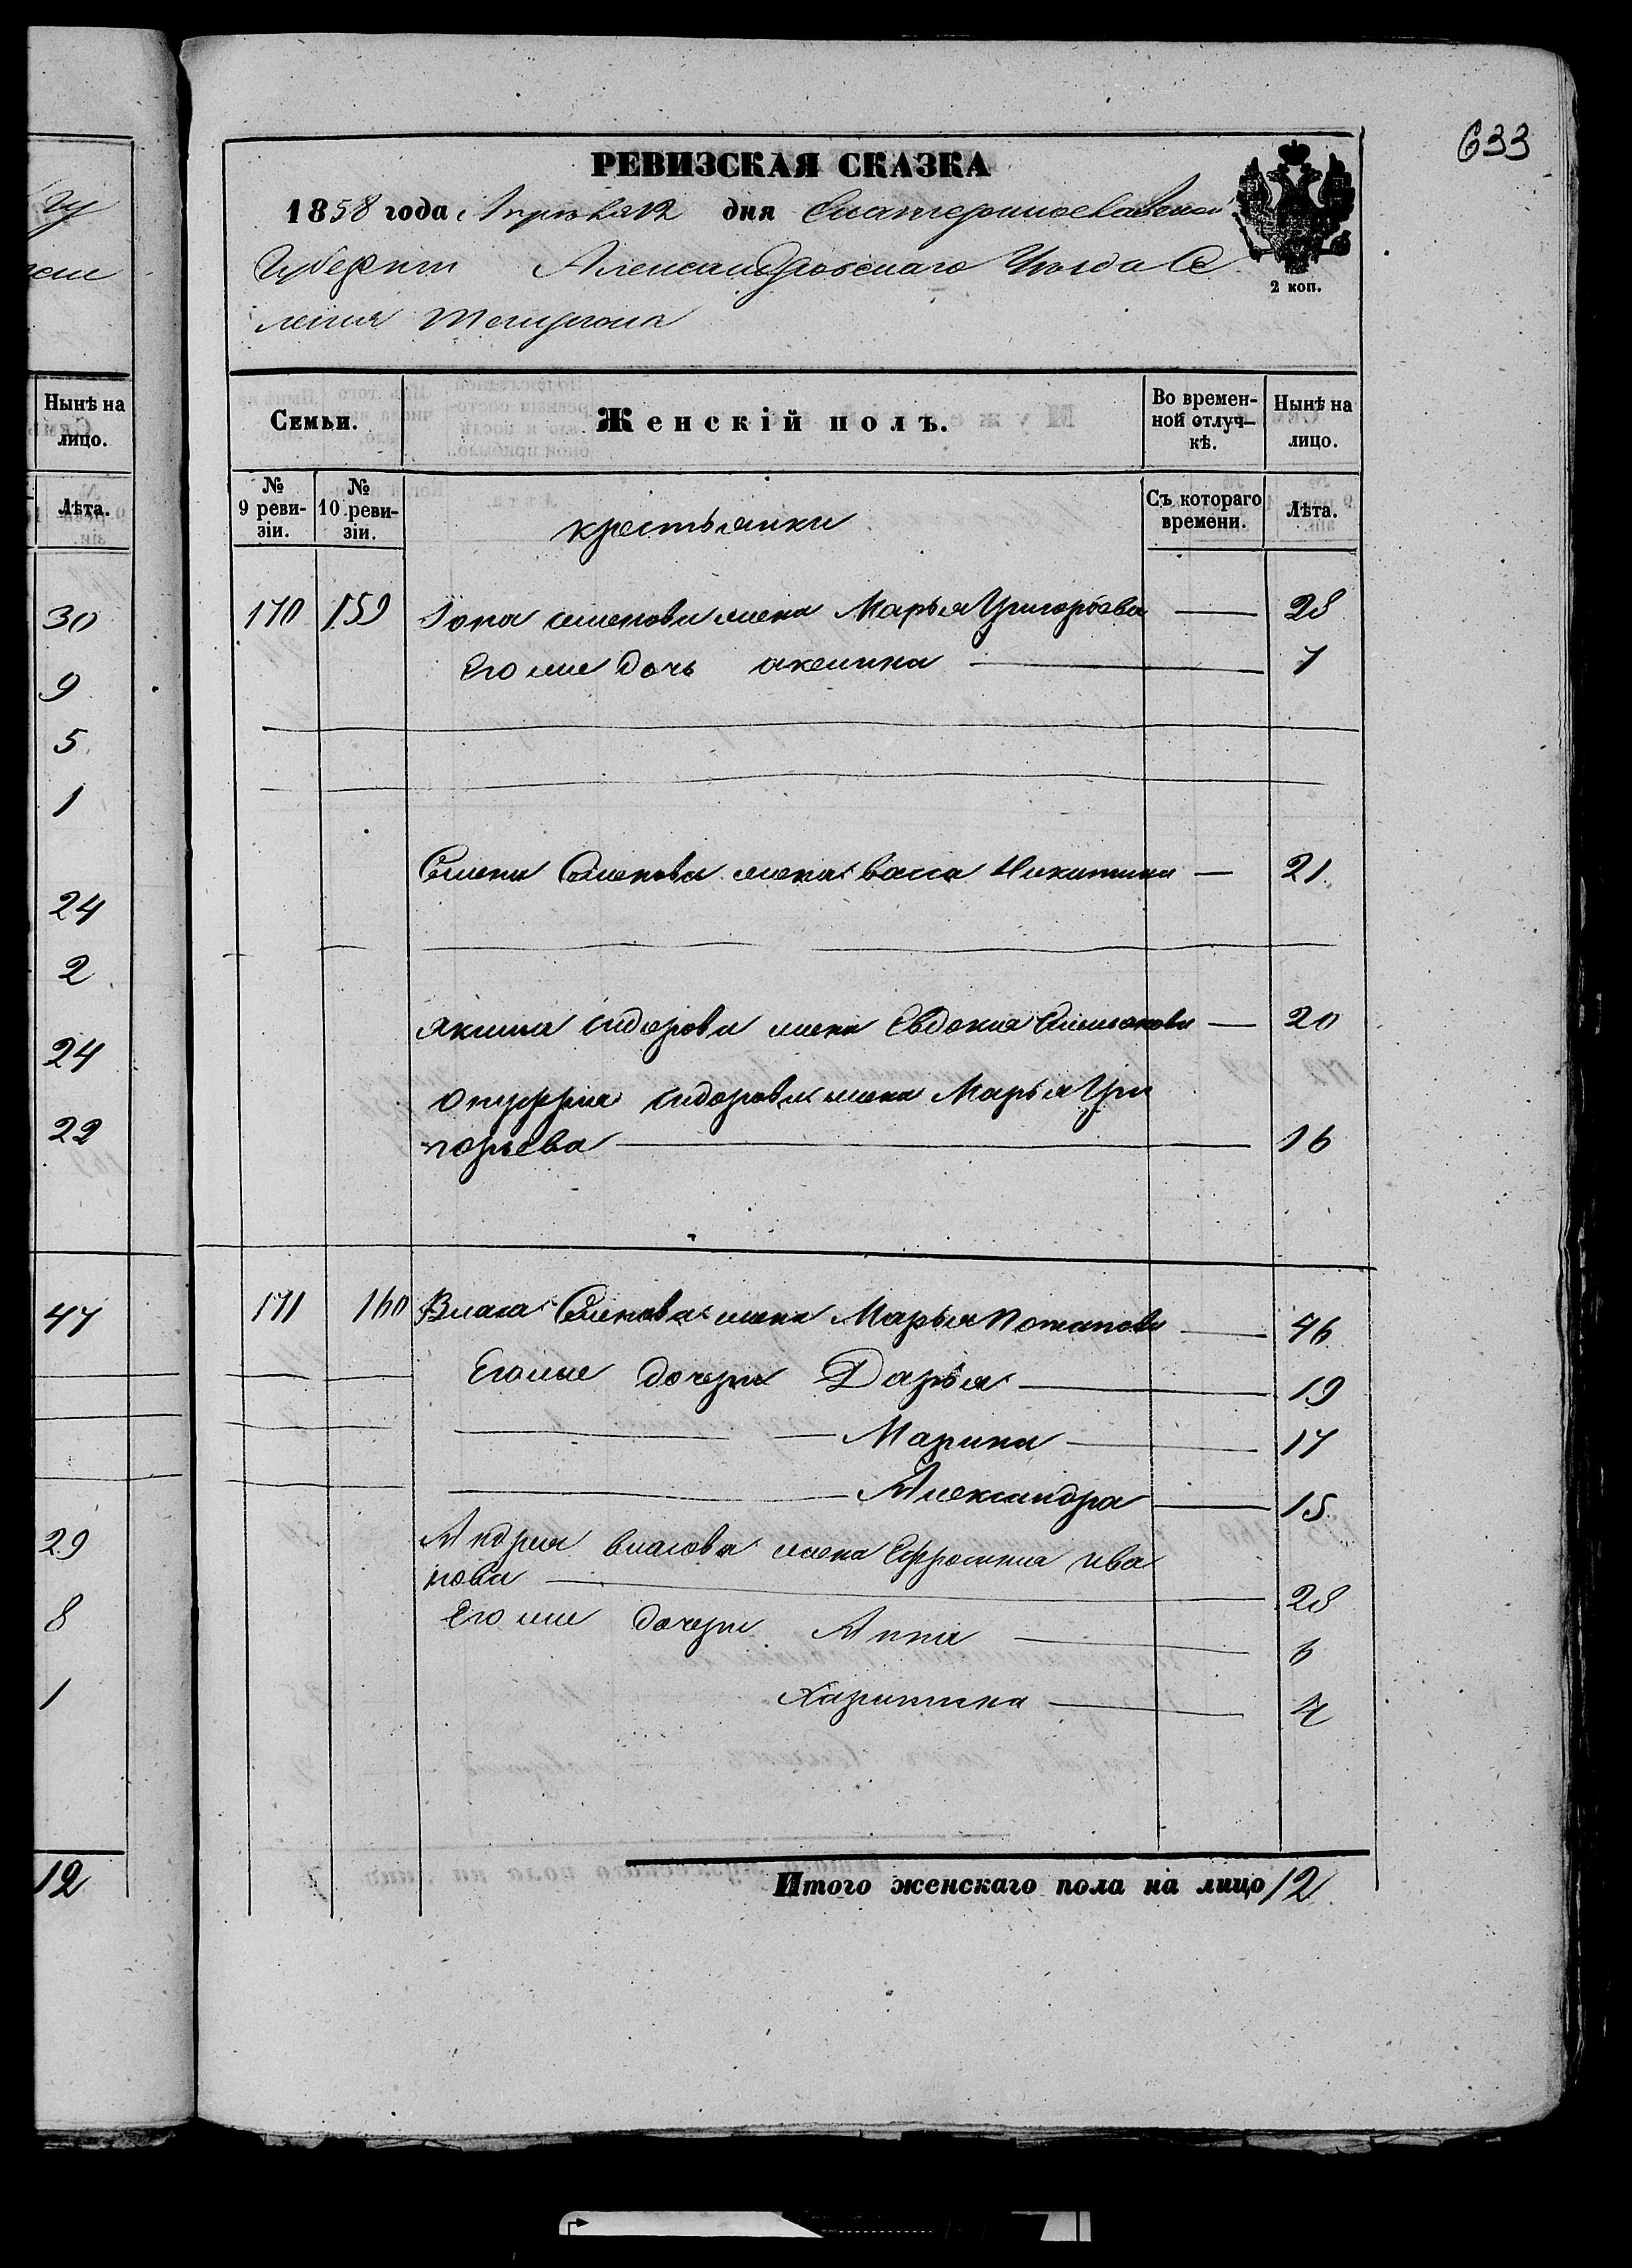 633
РЕВИЗСКАЯ СКАЗКА
1858 года Апреля 12 дня Екатеринославской
Губернии Александровскаго Уезда Се
ления
2 коп.
Семьи.
Женскій полъ.
Во времен-
ной отлуч-
кѣ.
Нынѣ на
лицо.
№
9 реви-
зіи.
№
10 реви-
зіи.
крестьянки
Съ котораго
времени.
Лѣта.
170 159 Іона семенова жена Марья Григорьева — 28
Его же дочь акси­нка — 7
Семена Семенова жена васса Никитина — 21
якима сидорова жена Евдокия — 20
онуфрия сидорова жена Марья Гри
горьева — 16
171 160 Власа Семенова жена Марья Потапова — 46
Его же дочери Дарья — 19
Марина — 17
Александра — 15
Андрея власова жена Ефросиния ива
нова — 28
Его же дочери Анна — 6
Харитина — 4
Итого женскаго пола на лицо 12
Нынѣ на
лицо.
Лѣта.
30
9
5
1
24
2
24
22
47
29
8
1
12